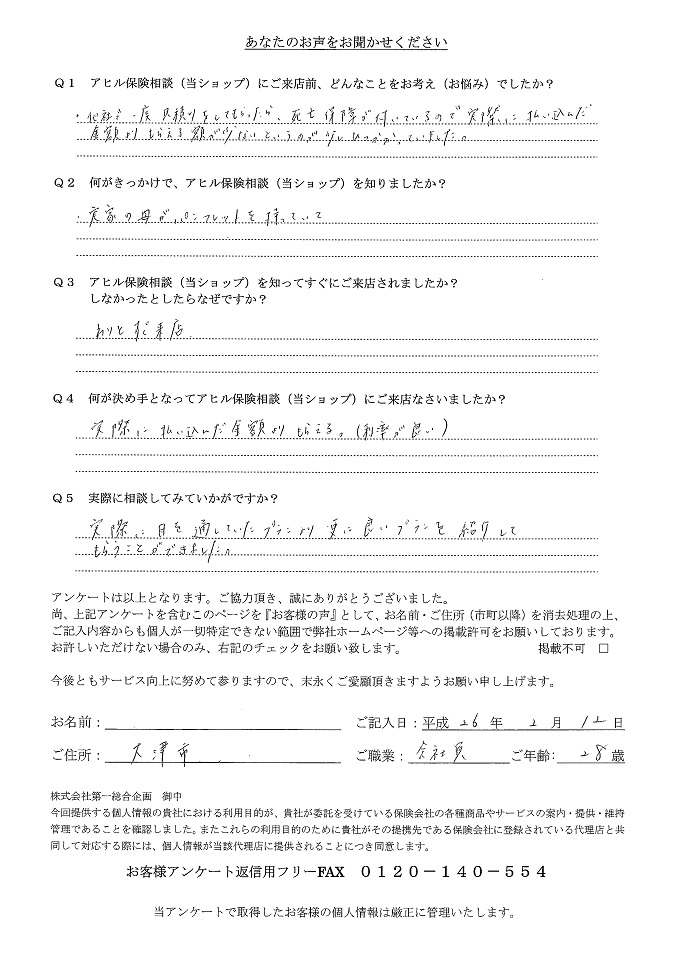 あなたのお声をお聞かせください
Q1 アヒル保険相談（当ショップ）にご来店前、どんなことをお考え（お悩み）でしたか？
・他社で一度見積りをしてもらったら、死亡保障が付いているので実際に払い込んだ
金額よりもらえる額が少ないというのが少しひっかかっていました。
Q2 何がきっかけで、アヒル保険相談（当ショップ）を知りましたか？
・実家の母がパンフレットを持っていて
Q3 アヒル保険相談（当ショップ）を知ってすぐにご来店されましたか？
しなかったとしたらなぜですか？
わりとすぐ来店
Q4 何が決め手となってアヒル保険相談（当ショップ）にご来店なさいましたか？
実際に払い込んだ金額よりもらえる。（利率が良い）
Q5 実際に相談してみていかがですか？
実際に目を通していたプランより更に良いプランを紹介して
もらうことができました。
アンケートは以上となります。ご協力頂き、誠にありがとうございました。
尚、上記アンケートを含むこのページを『お客様の声』として、お名前・ご住所（市町以降）を消去処理の上、
ご記入内容からも個人が一切特定できない範囲で弊社ホームページ等への掲載許可をお願いしております。
お許しいただけない場合のみ、右記のチェックをお願い致します。 掲載不可 □
今後ともサービス向上に努めて参りますので、末永くご愛願頂きますようお願い申し上げます。
お名前： ご記入日：平成 26 年 2 月 12 日
ご住所： 大津市 ご職業：会社員 ご年齢： 28 歳
株式会社第一総合企画 御中
今回提供する個人情報の貴社における利用目的が、貴社が委託を受けている保険会社の各種商品やサービスの案内・提供・維持
管理であることを確認しました。またこれらの利用目的のために貴社がその提携先である保険会社に登録されている代理店と共
同して対応する際には、個人情報が当該代理店に提供されることにつき同意します。
お客様アンケート返信用フリーFAX 0120－140－554
当アンケートで取得したお客様の個人情報は厳正に管理いたします。